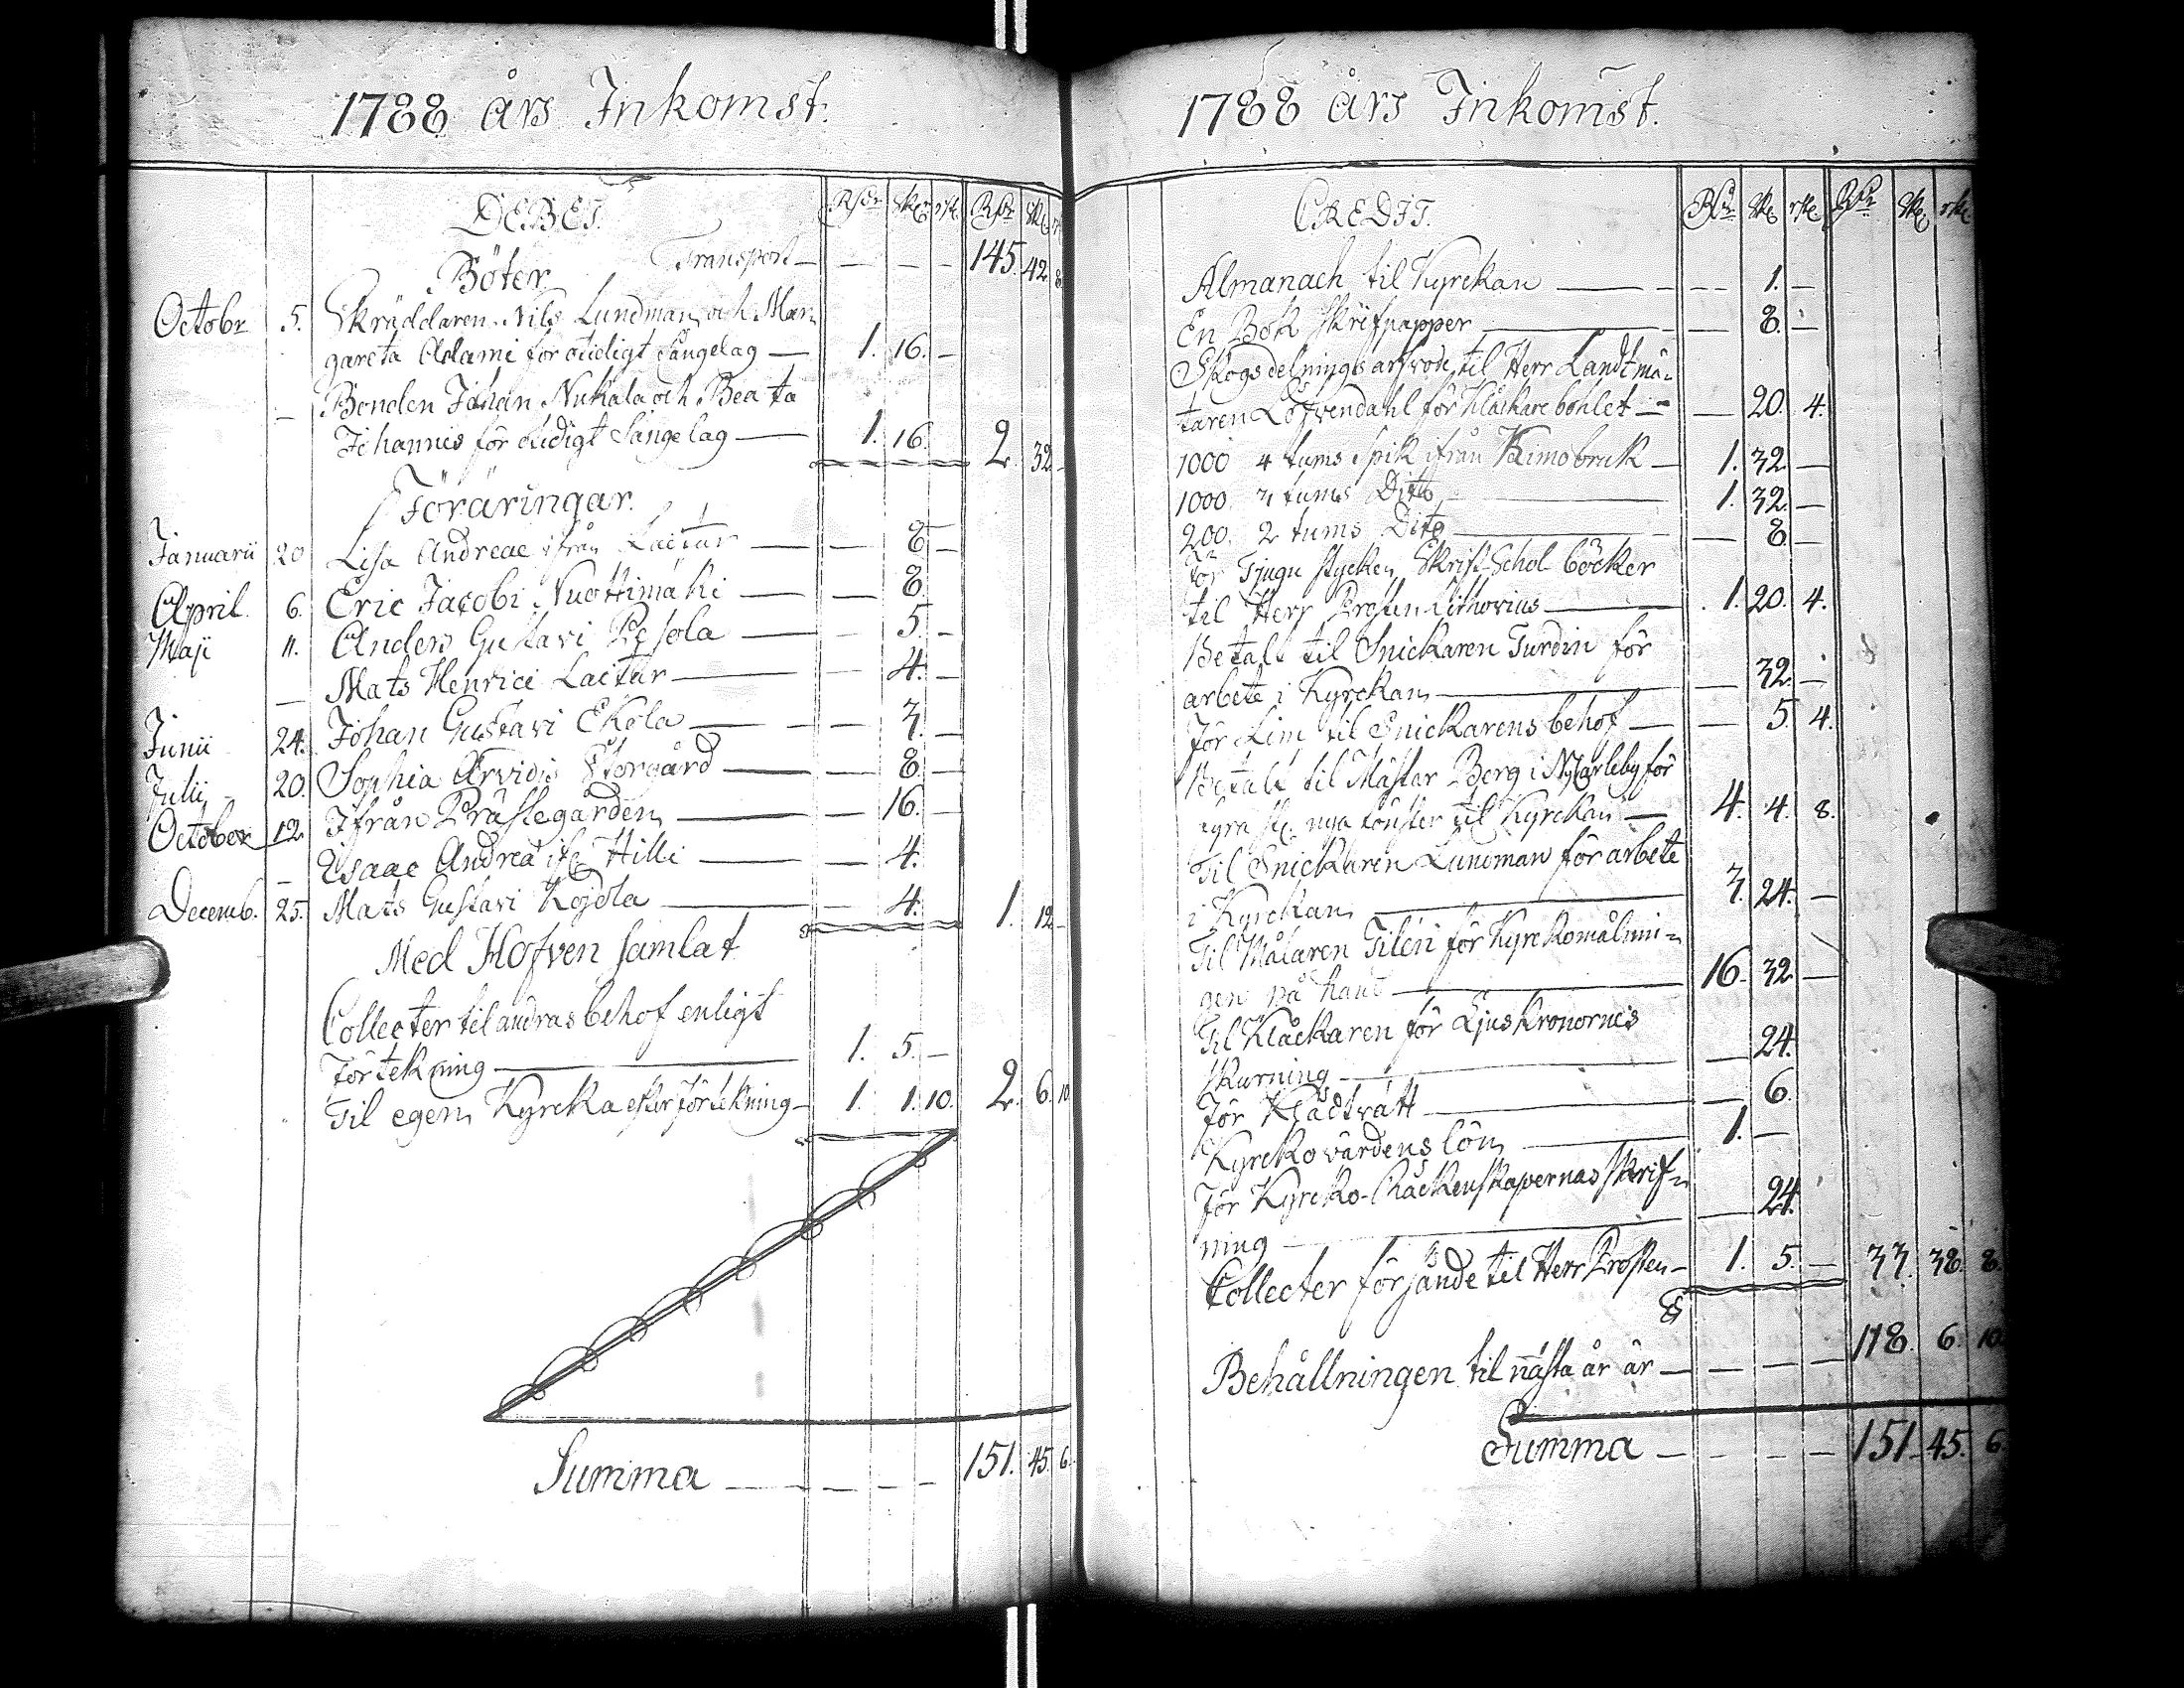 1788 års Inkomst.
DEBET. Rsdr sk. rst. Rsdr sk. rst.
Böter. Transport — — — — 145. 42. 8
Octobr 5. Skräddaren Nils Lundman och Mar-
gareta Adami för otidigt Sängelag — 1. 16. —
— Bonden Johan Nukala och Beata
Johannis för otidigt Sängelag — 1. 16. 2. 32. —
Föräringar.
Januarii 20 Lisa Andreae ifrån Laitar — — 8. —
April. 6. Eric Jacobi Nuottimäki — — 8.
Maji 11. Anders Gustavi Pesola — — 5. —
— Mats Henrici Laitar — — 4. —
Junii 24. Johan Gustavi Ekola — — 3. —
Julii 20. Sophia Arvidis Storgård — — 8. —
October 12 Ifrån Prästegården — — 16. —
— Esaac Andreae ifr. Hilli — — 4.
Decemb. 25. Mats Gustavi Kojola — — 4. 1. 12 —
Med Hofven samlat
Collecter til andras behof enligt
Förtekning — 1. 5. —
Til egen Kyrcka efter förtekning — 1. 1. 10. 2. 6. 10
Summa — — — — 151. 45. 6.
1788 års Inkomst.
CREDIT. Rsdr sk. rst. Rsdr sk. rst.
Almanach til Kyrckan — — 1. —
En Bok Skrifpapper — — 8. —
Skogsdelnings arfvode til Herr Landtmä-
taren Löfvendahl för Klåckare bohlet — — 20. 4.
1000 4 tums Spik ifrån Kimo bruk — 1. 32. —
1000. 3 tums Dito — 1. 32. —
200. 2 tums Dito — — 8. —
För Tjugu stycken Skrift-Schol böcker
til Herr Prosten Lithovius — 1. 20. 4.
Betalt til Snickaren Turdin för
arbete i Kyrckan — — 32. —
För Lim til Snickarens behof — — 5. 4.
Betalt til Mästar Berg i NyCarleby för
fyra st. nya fönster til Kyrckan — 4. 4. 8.
Til Snickaren Lundman för arbete
i Kyrckan — 3. 24. —
Til Målaren Tilén för Kyrckomålnin-
gen på hand — 16. 32. —
Til Klåckaren för Ljuskronornes
skurning — — 24.
För Klädtvätt — — 6.
Kyrckovärdens lön — 1. —
För Kyrcko-Räckenskapernas skrif-
ning — — 24.
Collecter försände til Herr Prosten — 1. 5. — 33. 38. 8.
Behållningen til nästa år är — — — — 118. 6. 10.
Summa — — — — 151. 45. 6.